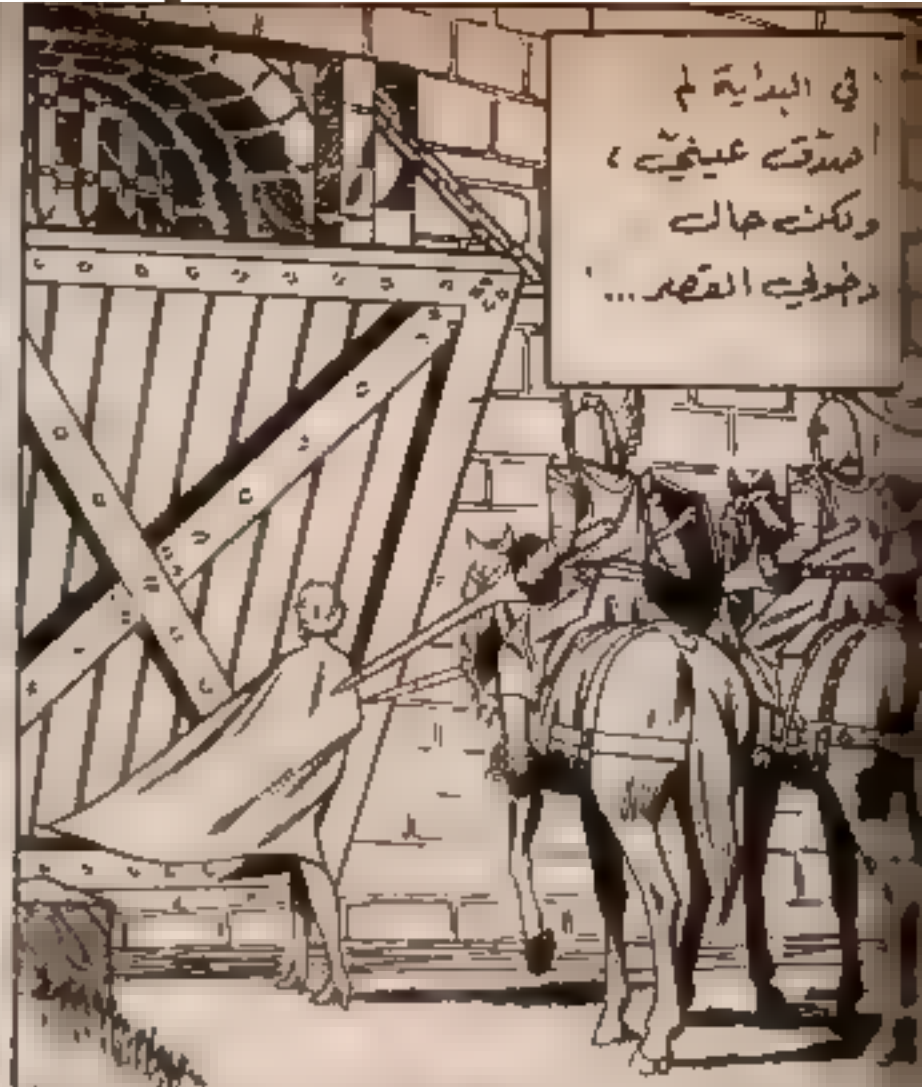 في البداية لم
صدّقت عينيّ ،
ولكن حال
دخولي القصر...